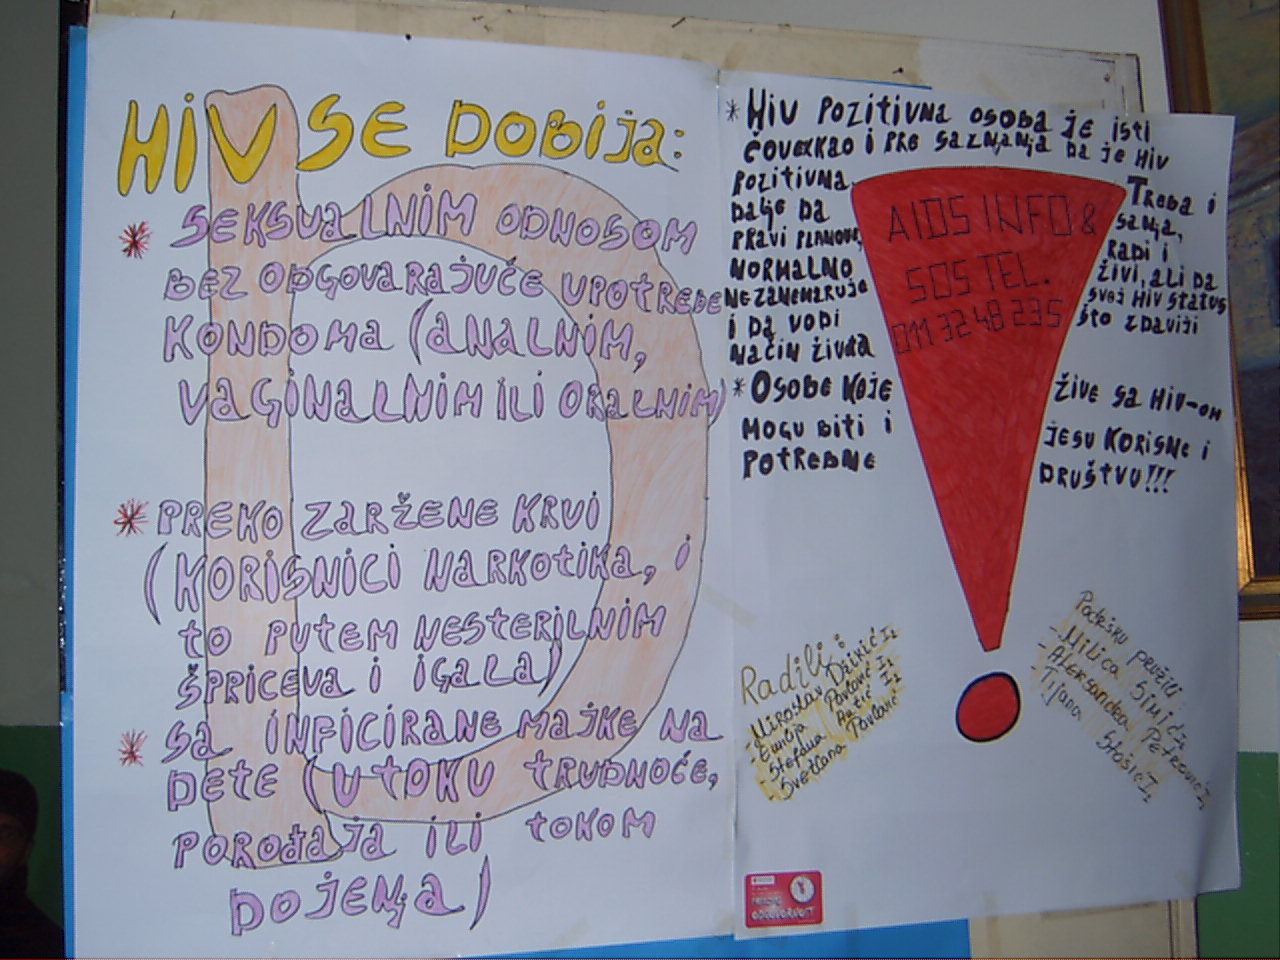 HIV SE DOBIJA:
* SEKSUALNIM ODNOSOM
BEZ ODGOVARAJUĆE UPOTREBE
KONDOMA (ANALNIM,
VAGINALNIM ILI ORALNIM)
* PREKO ZARŽENE KRVI
(KORISNICI NARKOTIKA, I
TO PUTEM NESTERILNIM
ŠPRICEVA I IGALA)
* SA INFICIRANE MAJKE NA
DETE (U TOKU TRUDNOĆE,
POROĐAJA ILI TOKOM
DOJENJA)
* HIV POZITIVNA OSOBA JE ISTI
ČOVEK KAO I PRE SAZNANJA DA JE HIV
POZITIVNA. TREBA I
DALJE DA SANJA,
PRAVI PLANOVE, RADI I
NORMALNO ŽIVI, ALI DA
NE ZANEMARUJE SVOJ HIV STATUS
I DA VODI ŠTO ZDAVIJI
NAČIN ŽIVOTA
* OSOBE KOJE ŽIVE SA HIV-OM
MOGU BITI I JESU KORISNE I
POTREBNE DRUŠTVU!!!
AIDS INFO &
SOS TEL.
011 32 48 235
Radili:
- Miroslav Dinić I2
- Emilija Pavlović I2
- Stefana Antić I2
- Svetlana Pavlović
Podršku pružili:
- Milica Simić I2
- Aleksandra Petrović I2
- Tijana Stošić I2
ODGOVORNOST